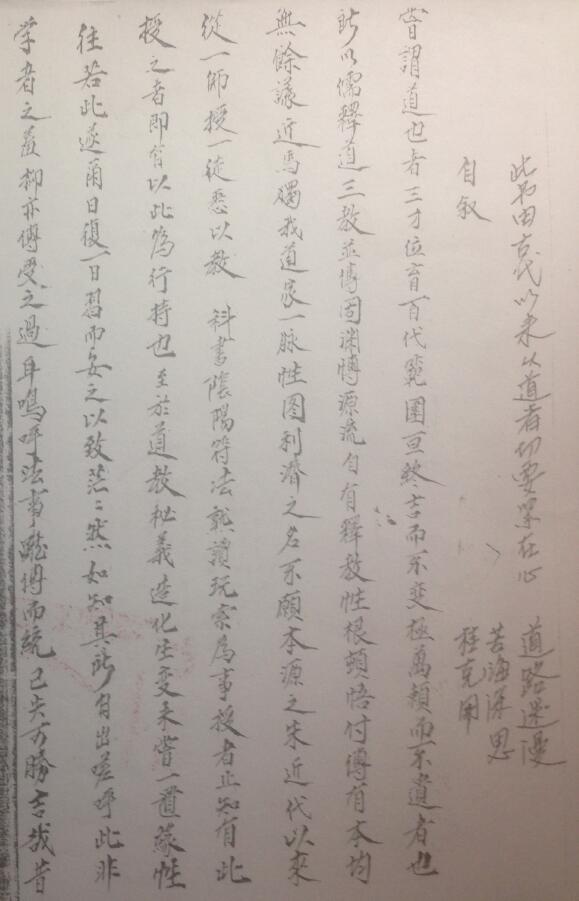 此乃由古代以来以道者切要累在心
道路遥漫
苦海深思
自叙
程克開
嘗謂道也者三才位育百代範圍亘終古而不变極萬類而不遺者也
所以儒釋道三教並傳固渊愽源流自有釋教性根頓悟付傳有本均
無餘議近焉獨我道家一脉性图利濟之名不顾本源之失近代以來
從一師授一徒悉以教 科書陰陽符法熟讀玩索為事投者止知有此
授之者即自以此為行持也至於道教秘義造化生变未嘗一置
往若此遂爾日復一日習而安之以致茫〻然如知其所自出嗟呼此非
学者之羞抑亦傅受之過耳鳴呼法事雖傅而統已失可勝言哉昔